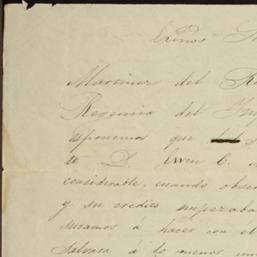 Exmos S
Martinez del R
Regencia del Im
esponemos que
te D. Ewen C.
considerable, cuando obser
y su credito empezaba
suramos á hacer con el
salvara á lo menos un